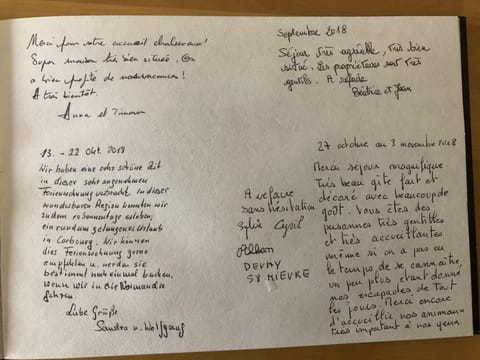 Merci pour votre accueil chaleureux!
Super maison très bien située. On
a bien profité de nos vacances!
A très bientôt
Anna et
Septembre 2018
Séjour très agréable, très bien
situé. Les propriétaires sont très
gentils. A refaire
Béatrice et Jean
13. - 22 Okt. 2018
Wir haben eine sehr schöne Zeit
in dieser sehr angenehmen
Ferienwohnung verbracht. In dieser
wunderbaren Region konnten wir
zudem noch Sonnentage erleben,
ein rundum gelungener Urlaub
in Carbourg. Wir können
dies Ferienwohnung gerne
empfehlen u. werden sie
bestimmt noch einmal buchen,
wenn wir in die Normandie
fahren.
Liebe Grüße
Sandra u. Wolfgang
A refaire
sans hésitation
Sylvie Cyril
DEVAY
58 NIEVRE
27 octobre au 3 novembre 2018
Merci séjour magnifique.
Très beau gîte fait et
décoré avec beaucoup de
goût. Vous êtes des
personnes très gentilles
et très accueillantes
même si on a pas eu
le temps de se connaître,
un peu plus étant donné
nos escapades de tout
les jours. Merci encore
d'accueillir nos animaux
très important à nos yeux.